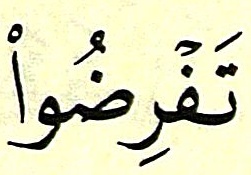 تَفۡرِضُواْ